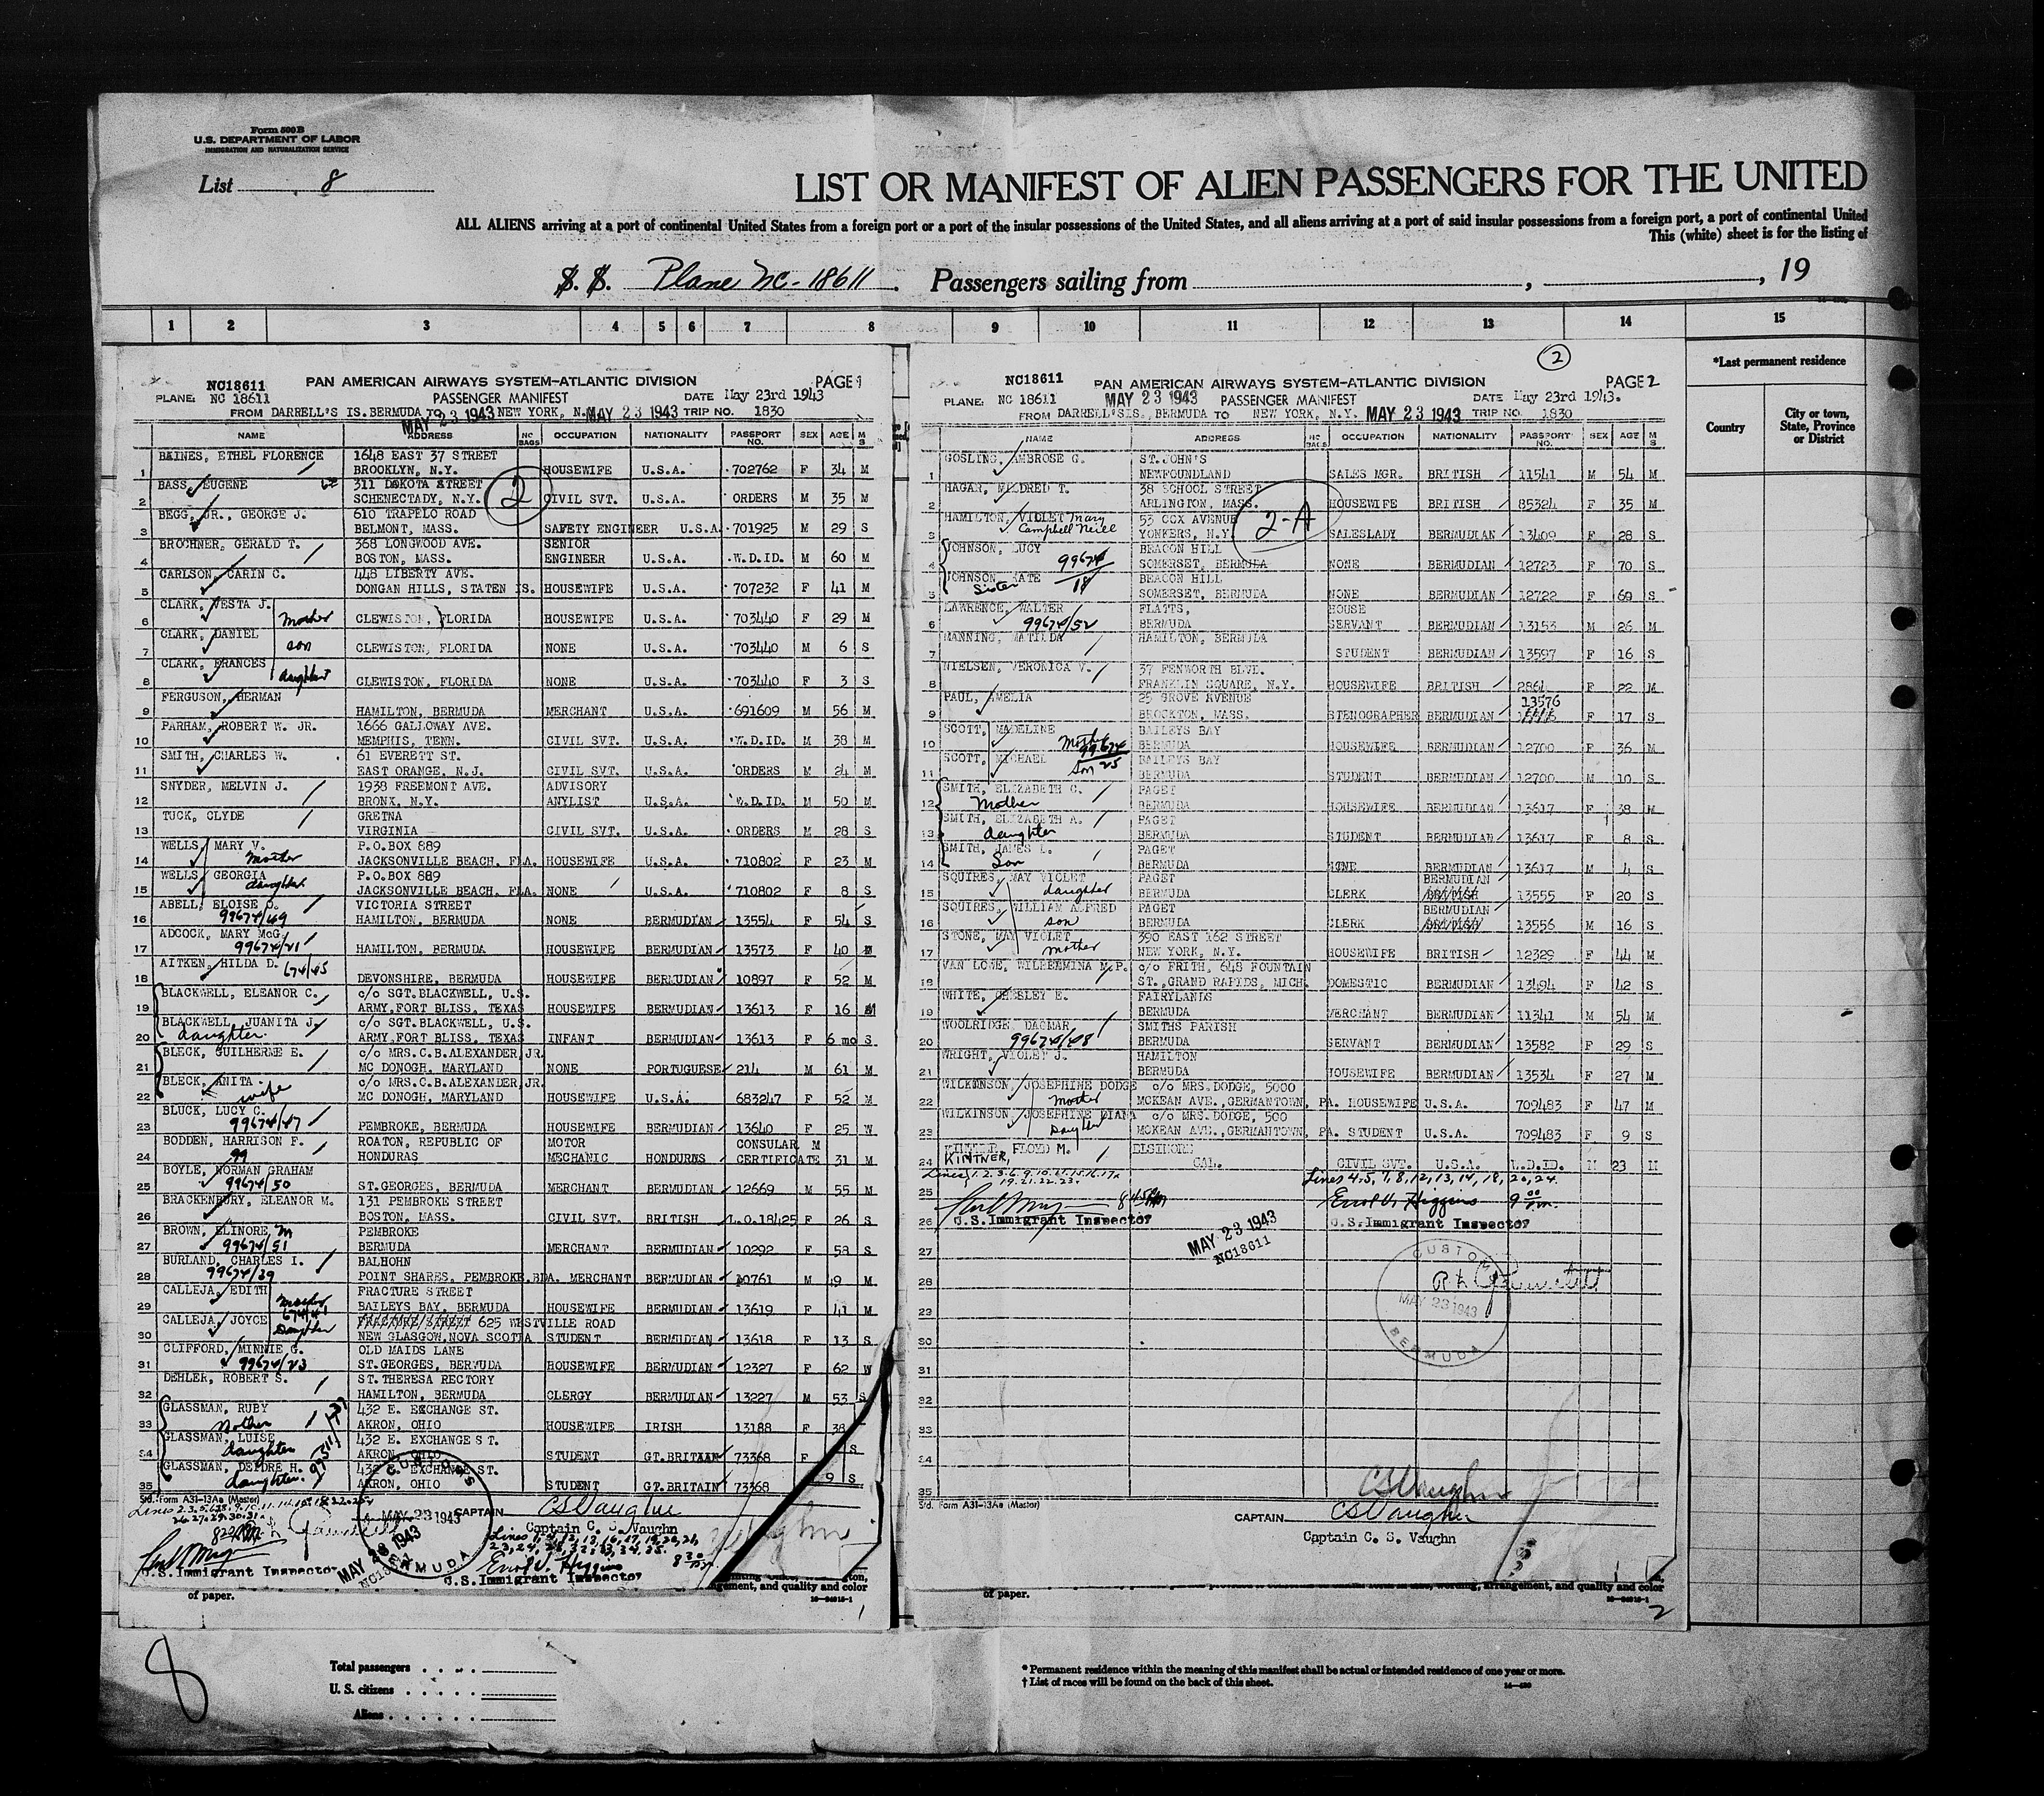 Form 500 B
U.S. DEPARTMENT OF LABOR
IMMIGRATION AND NATURALIZATION SERVICE
List 8
LIST OR MANIFEST OF ALIEN PASSENGERS FOR THE UNITED
ALL ALIENS arriving at a port of continental United States from a foreign port or a port of the insular possessions of the United States, and all aliens arriving at a port of said insular possessions from a foreign port, a port of continental United
This (white) sheet is for the listing of
S. S. Plane NC-18611. Passengers sailing from , , 19
1 2 3 4 5 6 7 8 9 10 11 12 13 14 15
*Last permanent residence
Country
City or town, State, Province or District
NC18611
PAN AMERICAN AIRWAYS SYSTEM-ATLANTIC DIVISION PAGE 1
PLANE: NC 18611 PASSENGER MANIFEST DATE May 23rd 1943
FROM DARRELL'S IS. BERMUDA TO NEW YORK, N.Y. MAY 23 1943 TRIP NO. 1830
MAY 23 1943
NAME ADDRESS NO BAGS OCCUPATION NATIONALITY PASSPORT NO. SEX AGE M S
2
BAINES, ETHEL FLORENCE 1648 EAST 37 STREET
1 BROOKLYN, N.Y. HOUSEWIFE U.S.A. 702762 F 34 M
BASS, EUGENE 311 DAKOTA STREET
2 SCHENECTADY, N.Y. CIVIL SVT. U.S.A. ORDERS M 35 M
BEGG, JR., GEORGE J. 610 TRAPELO ROAD
3 BELMONT, MASS. SAFETY ENGINEER U.S.A. 701925 M 29 S
BROCHNER, GERALD T. 368 LONGWOOD AVE. SENIOR
4 BOSTON, MASS. ENGINEER U.S.A. W.D.ID. M 60 M
CARLSON, CARIN C. 448 LIBERTY AVE.
5 DONGAN HILLS, STATEN IS. HOUSEWIFE U.S.A. 707232 F 41 M
CLARK, VESTA J. Mother
6 CLEWISTON, FLORIDA HOUSEWIFE U.S.A. 703440 F 29 M
CLARK, DANIEL son
7 CLEWISTON, FLORIDA NONE U.S.A. 703440 M 6 S
CLARK, FRANCES daughter
8 CLEWISTON, FLORIDA NONE U.S.A. 703440 F 3 S
FERGUSON, HERMAN
9 HAMILTON, BERMUDA MERCHANT U.S.A. 691609 M 56 M
PARHAM, ROBERT W. JR. 1666 GALLOWAY AVE.
10 MEMPHIS, TENN. CIVIL SVT. U.S.A. W.D.ID. M 38 M
SMITH, CHARLES W. 61 EVERETT ST.
11 EAST ORANGE, N.J. CIVIL SVT. U.S.A. ORDERS M 24 M
SNYDER, MELVIN J. 1938 FREEMONT AVE. ADVISORY
12 BRONX, N.Y. ANYLIST U.S.A. W.D.ID. M 50 M
TUCK, CLYDE GRETNA
13 VIRGINIA CIVIL SVT. U.S.A. ORDERS M 28 S
WELLS, MARY V. P.O.BOX 889
14 Mother JACKSONVILLE BEACH, FLA. HOUSEWIFE U.S.A. 710802 F 23 M
WELLS, GEORGIA P.O.BOX 889
15 daughter JACKSONVILLE BEACH, FLA. NONE U.S.A. 710802 F 8 S
ABELL, ELOISE VICTORIA STREET
16 99674/49 HAMILTON, BERMUDA NONE BERMUDIAN 13554 F 54 S
ADCOCK, MARY McG.
17 99674/21 HAMILTON, BERMUDA HOUSEWIFE BERMUDIAN 13573 F 40 M
AITKEN, HILDA D. 674/45
18 DEVONSHIRE, BERMUDA HOUSEWIFE BERMUDIAN 10897 F 52 M
BLACKWELL, ELEANOR C. c/o SGT.BLACKWELL, U.S.
19 ARMY,FORT BLISS, TEXAS HOUSEWIFE BERMUDIAN 13613 F 16 M
BLACKWELL, JUANITA J. c/o SGT.BLACKWELL, U.S.
20 daughter ARMY,FORT BLISS, TEXAS INFANT BERMUDIAN 13613 F 6 mo S
BLECK, GUILHERME E. c/o MRS.C.B.ALEXANDER,JR.
21 MC DONOGH, MARYLAND NONE PORTUGUESE 214 M 61 M
BLECK, ANITA c/o MRS.C.B.ALEXANDER,JR.
22 wife MC DONOGH, MARYLAND HOUSEWIFE U.S.A. 683247 F 52 M
BLUCK, LUCY C.
23 99674/47 PEMBROKE, BERMUDA HOUSEWIFE BERMUDIAN 13640 F 25 W
BODDEN, HARRISON F. ROATON, REPUBLIC OF MOTOR CONSULAR M
24 99 HONDURAS MECHANIC HONDURUS CERTIFICATE 31 M
BOYLE, NORMAN GRAHAM
25 99674/50 ST.GEORGES, BERMUDA MERCHANT BERMUDIAN 12669 M 55 M
BRACKENBURY, ELEANOR M. 131 PEMBROKE STREET
26 BOSTON, MASS. CIVIL SVT. BRITISH L.O.18425 F 26 S
BROWN, ELINORE, M PEMBROKE
27 99674/51 BERMUDA MERCHANT BERMUDIAN 10292 F 58 S
BURLAND, CHARLES I. BALHOHN
28 99674/39 POINT SHARES, PEMBROKE,BDA. MERCHANT BERMUDIAN 10761 M 49 M
CALLEJA, EDITH FRACTURE STREET
29 Mother 674/41 BAILEYS BAY, BERMUDA HOUSEWIFE BERMUDIAN 13619 F 41 M
CALLEJA, JOYCE FRACTURE STREET 625 WESTVILLE ROAD
30 Daughter NEW GLASGOW,NOVA SCOTIA STUDENT BERMUDIAN 13618 F 13 S
CLIFFORD, MINNIE G. OLD MAIDS LANE
31 99674/23 ST.GEORGES, BERMUDA HOUSEWIFE BERMUDIAN 12327 F 62 W
DEHLER, ROBERT S. ST.THERESA RECTORY
32 HAMILTON, BERMUDA CLERGY BERMUDIAN 13227 M 53 S
GLASSMAN, RUBY 432 E. EXCHANGE ST.
33 Mother AKRON, OHIO HOUSEWIFE IRISH 13188 F 38
GLASSMAN, LUISE 432 E. EXCHANGE ST.
34 daughter AKRON, OHIO STUDENT GT.BRITAIN 73368 F S
GLASSMAN, DEIDRE H. 432 E. EXCHANGE ST.
35 daughter. AKRON, OHIO STUDENT GT.BRITAIN 73368 9 S
Std. Form A31-13Aa (Master)
CAPTAIN CSVaughn
Captain C. S. Vaughn
CUSTOMS MAY 23 1943 BERMUDA
MAY 23 1943
Errol V. Higgins 8 30 pm.
U.S.Immigrant Inspector
U.S.Immigrant Inspector
gement, and quality and color
of paper.
16-24915-1
1
2
NC18611
PAN AMERICAN AIRWAYS SYSTEM-ATLANTIC DIVISION PAGE 2
PLANE: NC 18611 MAY 23 1943 PASSENGER MANIFEST DATE May 23rd 1943.
FROM DARRELL'S IS., BERMUDA TO NEW YORK, N.Y. MAY 23 1943 TRIP NO. 1830
NAME ADDRESS NO BAGS OCCUPATION NATIONALITY PASSPORT NO. SEX AGE M S
2-A
GOSLING, AMBROSE G. ST.JOHN'S
1 NEWFOUNDLAND SALES MGR. BRITISH 11541 M 54 M
HAGAR, MILDRED T. 38 SCHOOL STREET
2 ARLINGTON, MASS. HOUSEWIFE BRITISH 85324 F 35 M
HAMILTON, VIOLET Mary 53 COX AVENUE
3 Campbell Neill YONKERS, N.Y. SALESLADY BERMUDIAN 13409 F 28 S
JOHNSON, LUCY BEACON HILL
4 99674/18 SOMERSET, BERMUDA NONE BERMUDIAN 12723 F 70 S
JOHNSON, KATE BEACON HILL
5 Sister SOMERSET, BERMUDA NONE BERMUDIAN 12722 F 69 S
LAWRENCE, WALTER FLATTS, HOUSE
6 99674/52 BERMUDA SERVANT BERMUDIAN 13153 M 26 M
MANNING, MATILDA HAMILTON, BERMUDA
7 STUDENT BERMUDIAN 13597 F 16 S
NIELSEN, VERONICA V. 37 FENWORTH BLVD.
8 FRANKLIN SQUARE, N.Y. HOUSEWIFE BRITISH 2864 F 22 M
PAUL, AMELIA 25 GROVE AVENUE 13576
9 BROCKTON, MASS. STENOGRAPHER BERMUDIAN F 17 S
SCOTT, MADELINE BAILEYS BAY
10 Mother 99674/25 BERMUDA HOUSEWIFE BERMUDIAN 12700 F 36 M
SCOTT, MICHAEL BAILEYS BAY
11 Son BERMUDA STUDENT BERMUDIAN 12700 M 10 S
SMITH, ELIZABETH C. PAGET
12 Mother BERMUDA HOUSEWIFE BERMUDIAN 13617 F 38 M
SMITH, ELIZABETH A. PAGET
13 daughter BERMUDA STUDENT BERMUDIAN 13617 F 8 S
SMITH, JAMES L. PAGET
14 Son BERMUDA NONE BERMUDIAN 13617 M 4 S
SQUIRES, MAY VIOLET PAGET BERMUDIAN
15 daughter BERMUDA CLERK BRITISH 13555 F 20 S
SQUIRES, WILLIAM ALFRED PAGET BERMUDIAN
16 son BERMUDA CLERK BRITISH 13556 M 16 S
STONE, MAY VIOLET 390 EAST 162 STREET
17 mother NEW YORK, N.Y. HOUSEWIFE BRITISH 12329 F 44 M
VAN LOWE, WILHEMINA M.P. c/o FRITH, 648 FOUNTAIN
18 ST.,GRAND RAPIDS, MICH. DOMESTIC BERMUDIAN 13494 F 42 S
WHITE, CHESLEY E. FAIRYLANDS
19 BERMUDA MERCHANT BERMUDIAN 11341 M 54 M
WOOLRIDGE, DAGMAR SMITHS PARISH
20 99674/48 BERMUDA SERVANT BERMUDIAN 13582 F 29 S
WRIGHT, VIOLET J. HAMILTON
21 BERMUDA HOUSEWIFE BERMUDIAN 13534 F 27 M
WILKINSON, JOSEPHINE DODGE c/o MRS.DODGE, 5000
22 Mother MCKEAN AVE.,GERMANTOWN, PA. HOUSEWIFE U.S.A. 709483 F 47 M
WILKINSON, JOSEPHINE DIANA c/o MRS. DODGE, 500
23 Daughter MCKEAN AVE.,GERMANTOWN, PA. STUDENT U.S.A. 709483 F 9 S
FLOYD M. ELSINORE
24 KINTNER, CAL. CIVIL SVT. U.S.A. W.D.ID. M 23 M
Lines 4,5,7,8,12,13,14,18,20,24.
25 Errol V. Higgins 9 00 pm.
26 U.S.Immigrant Inspector U.S.Immigrant Inspector
MAY 23 1943
NC18611
27
28
29
30
31
32
33
34
35
CUSTOMS MAY 23 1943 BERMUDA
Std. Form A31-13Aa (Master)
CSVaughn
CAPTAIN CSVaughn
Captain C. S. Vaughn
wording, arrangement, and quality and color
of paper.
16-24915-1
2
8
Total passengers
U. S. citizens
Aliens
* Permanent residence within the meaning of this manifest shall be actual or intended residence of one year or more.
† List of races will be found on the back of this sheet.